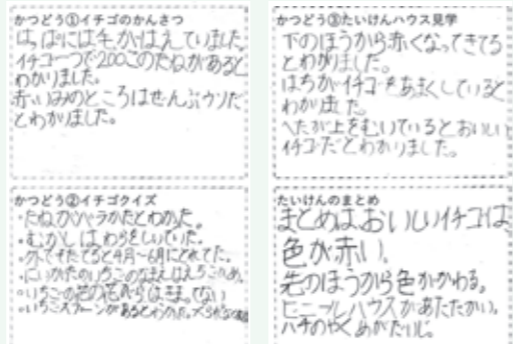 かつどう①イチゴのかんさつ
はっぱには毛がはえていました。
イチゴ一つで200このたねがあると
わかりました。
赤いみのところはぜんぶウソだ
とわかりました。
かつどう②イチゴクイズ
・たねが
・むかしはわらをしいていた。
・外でそだてると4月~6月にとれてた。
・にいがたのいちごのなまえはえちごひめ。
・いちごの花の花
・いちごスプーンがあるとわかった。
かつどう③たいけんハウス見学
下のほうから赤くなってきてる
とわかりました。
はちがイチゴをあまくしていると
わかりました。
へたが上をむいているとおいしい
イチゴだとわかりました。
たいけんのまとめ
まとめはおいしいイチゴは、
色が赤い。
先のほうから色がかわる。
ビニールハウスがあたたかい。
ハチのやくめがだいじ。